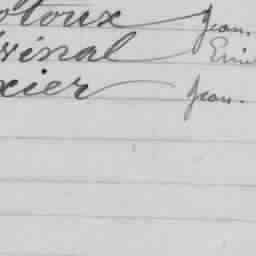 otoux Jean.
vinal
xier Jean.